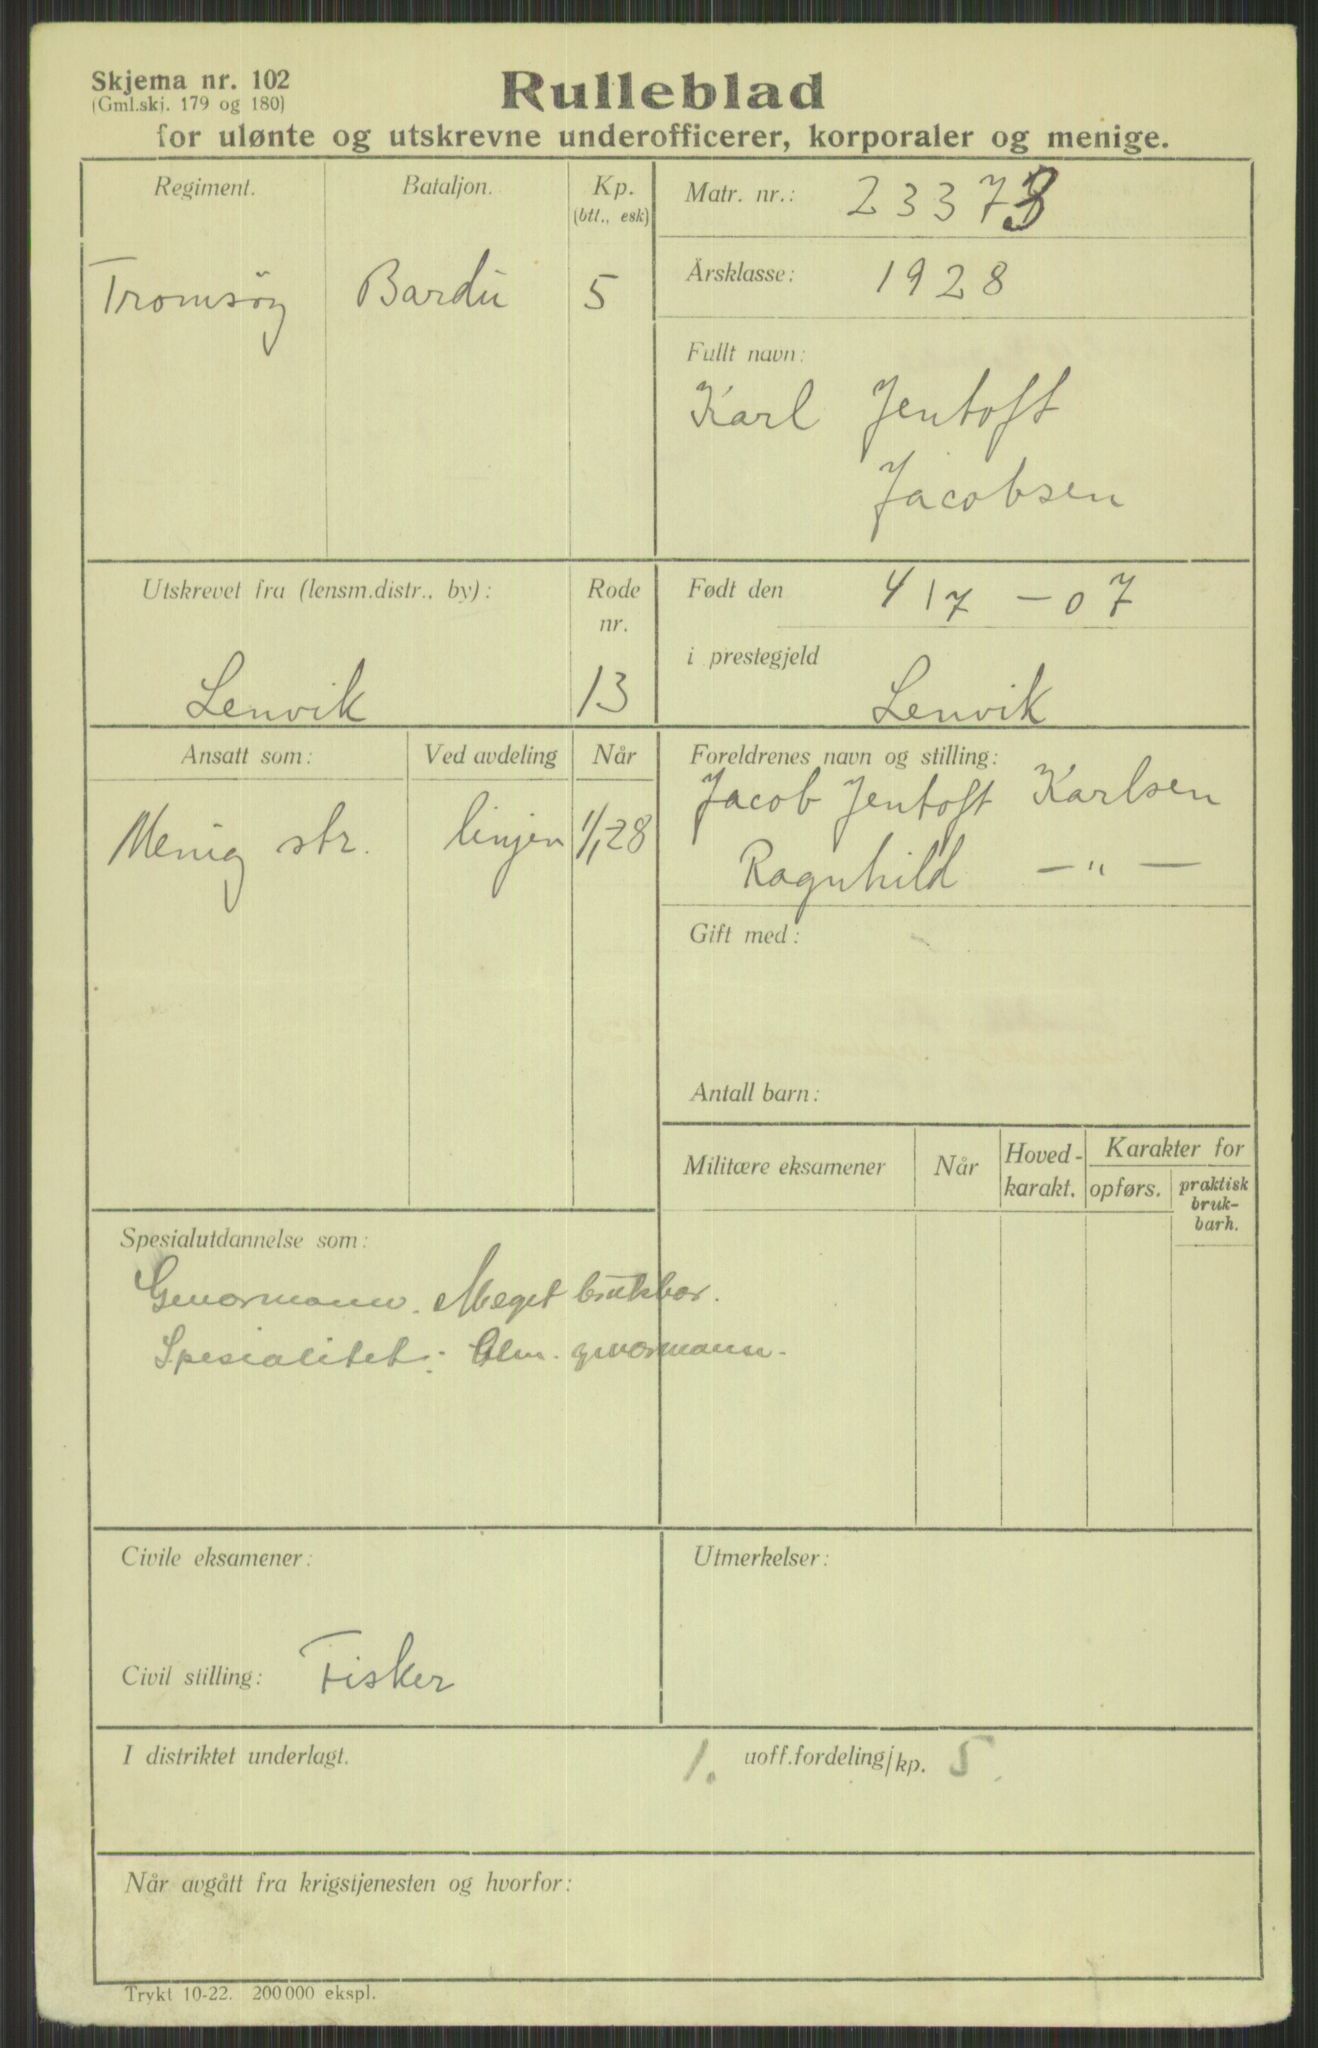 Skjema nr. 102
(Gml.skj. 179 og 180)
Rulleblad
for ulønte og utskrevne underofficerer, korporaler og menige.
Regiment.
Bataljon.
Kp.
(btl., esk)
Tromsøy
Bardu
5
Matr. nr.:
Årsklasse: 1928
Fullt navn:
Karl Jentoft
Jacobsen
Utskrevet fra (lensm.distr., by):
Rode
nr.
Lenvik
13
Født den 4/7 - 07
i prestegjeld
Lenvik
Ansatt som:
Ved avdeling
Når
Menig str.
linjen
1/1 28
Foreldrenes navn og stilling:
Jacob Jentoft Karlsen
Ragnhild — " —
Gift med:
Antall barn:
Militære eksamener
Når
Hoved-
karakt.
Karakter for
opførs.
praktisk
bruk-
barh.
Spesialutdannelse som:
Geværmann. Meget brukbar.
Spesialitet: Alm. geværmann.
Civile eksamener:
Civil stilling: Fisker
Utmerkelser:
I distriktet underlagt.
1. uoff.fordeling/kp. 5.
Når avgått fra krigstjenesten og hvorfor:
Trykt 10-22. 200 000 ekspl.